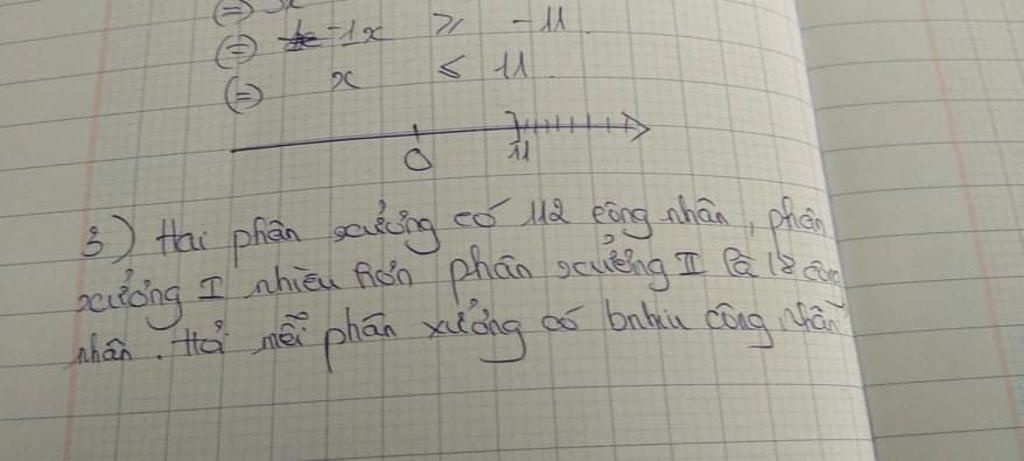 (=)
(=) -1x ≥ -11.
(=) x ≤ 11.
0 11
3) Hai phân xưởng có 112 công nhân, phân
xưởng I nhiều hơn phân xưởng II là 12 công
nhân. Hỏi mỗi phân xưởng có bnhiu công nhân